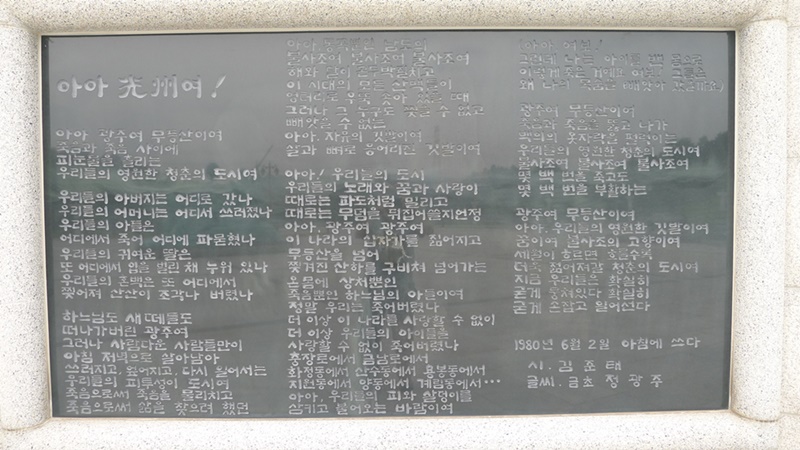 아아 光州여!
아아, 광주여 무등산이여
죽음과 죽음 사이에
피눈물을 흘리는
우리들의 영원한 청춘의 도시여
우리들의 아버지는 어디로 갔나
우리들의 어머니는 어디서 쓰러졌나
우리들의 아들은
어디에서 죽어 어디에 파묻혔나
우리들의 귀여운 딸은
또 어디에서 입을 벌린 채 누워 있나
우리들의 혼백은 또 어디에서
찢어져 산산이 조각나 버렸나
하느님도 새떼들도
떠나가버린 광주여
그러나 사람다운 사람들만이
아침 저녁으로 살아남아
쓰러지고, 엎어지고, 다시 일어서는
우리들의 피투성이 도시여
죽음으로써 죽음을 물리치고
죽음으로써 삶을 찾으려 했던
아아, 통곡뿐인 남도의
불사조여 불사조여 불사조여
해와 달이 곤두박질치고
이 시대의 모든 산맥들이
엉터리로 우뚝 솟아 있을 때
그러나 그 누구도 찢을 수 없고
빼앗을 수 없는
아아, 자유의 깃발이여
살과 뼈로 응어리진 깃발이여
아아! 우리들의 도시
우리들의 노래와 꿈과 사랑이
때로는 파도처럼 밀리고
때로는 무덤을 뒤집어쓸지언정
아아, 광주여 광주여
이 나라의 십자가를 짊어지고
무등산을 넘어
골고다 언덕을 넘어가는
아아, 온몸에 상처뿐인
죽음뿐인 하느님의 아들이여
정말 우리는 죽어버렸나
더 이상 이 나라를 사랑할 수 없이
더 이상 우리들의 아이들을
사랑할 수 없이 죽어버렸나
충장로에서 금남로에서
화정동에서 산수동에서 용봉동에서
지원동에서 양동에서 계림동에서…
아아, 우리들의 피와 살덩이를
삼키고 불어오는 바람이여
(아아, 여보!
그런데 나는 아이를 밴 몸으로
이렇게 죽은 거예요 여보! 그들은
왜 나의 목숨을 빼앗아 갔을까요)
광주여 무등산이여
죽음과 죽음을 뚫고 나가
백의의 옷자락을 펄럭이는
우리들의 영원한 청춘의 도시여
불사조여 불사조여 불사조여
몇 백 번을 죽고도
몇 백 번을 부활하는
광주여 무등산이여
아아, 우리들의 영원한 깃발이여
꿈이여 불사조의 고향이여
세월이 흐르면 흐를수록
더욱 젊어져갈 청춘의 도시여
지금 우리들은 확실히
굳게 뭉쳐있다 확실히
굳게 손잡고 일어선다
1980년 6월 2일 아침에 쓰다
시. 김준태
글씨. 금초 정광주